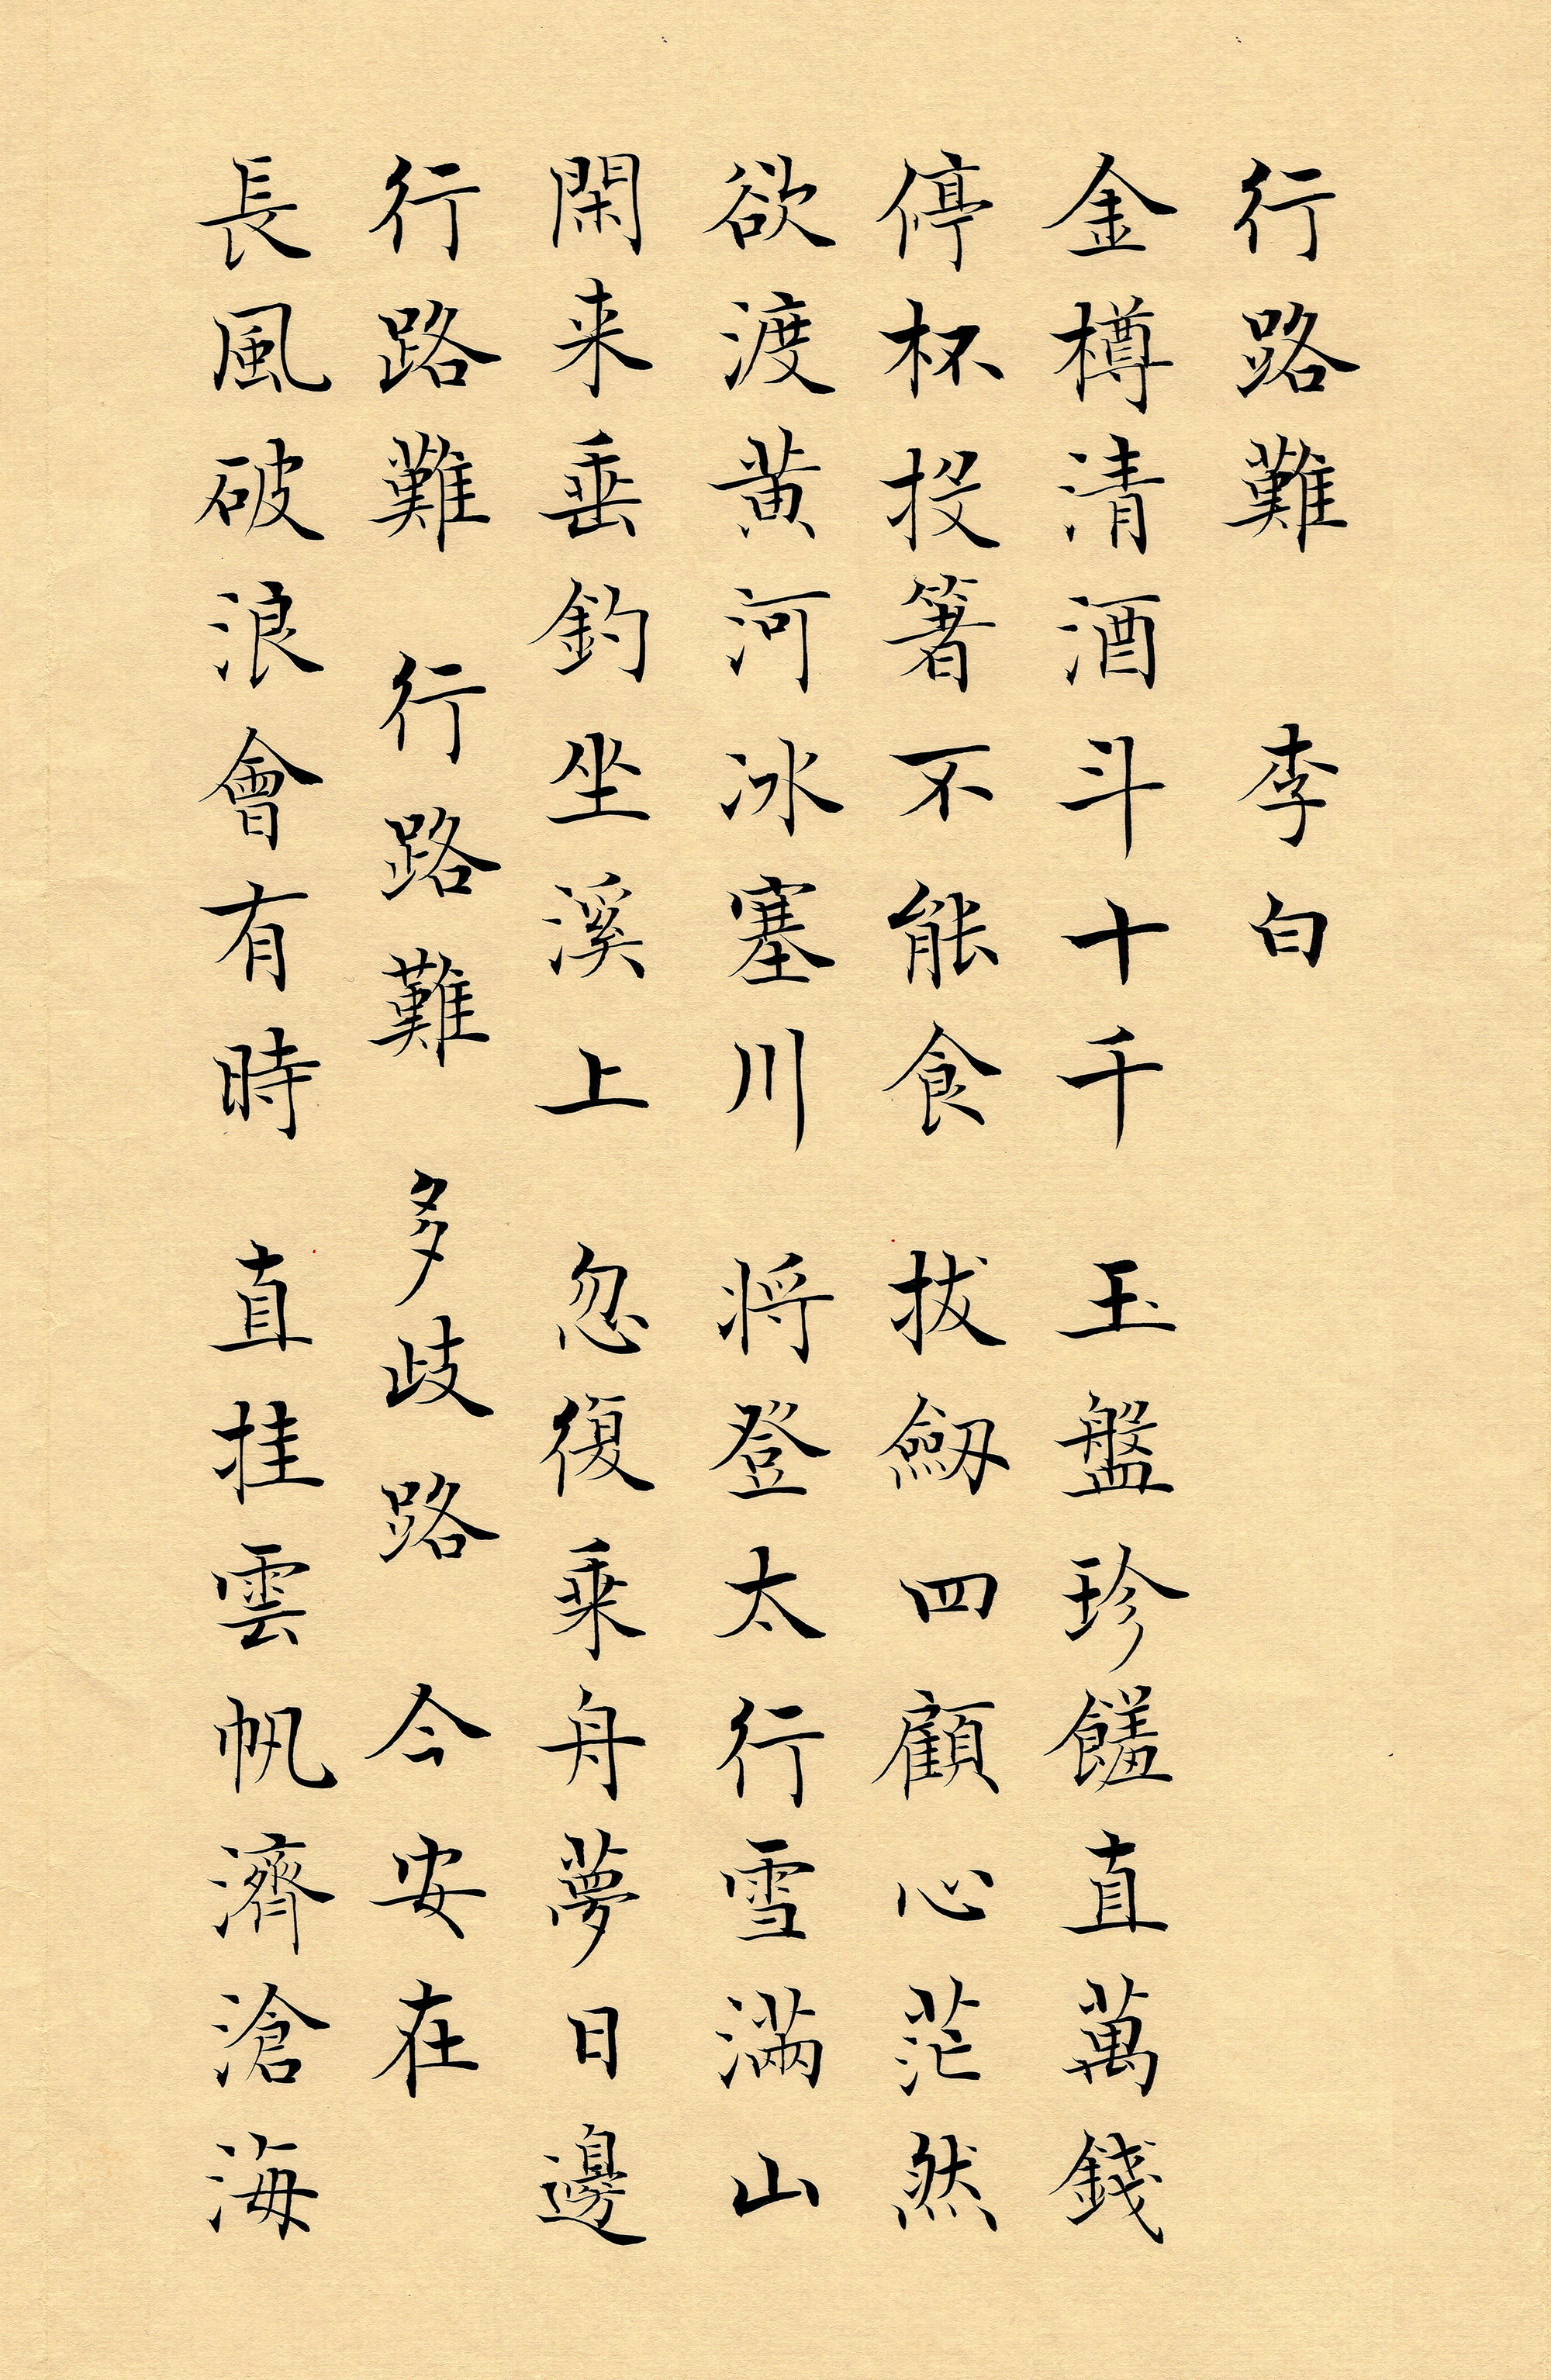 行路難 李白
金樽清酒斗十千 玉盤珍饈直萬錢
停杯投箸不能食 拔劒四顧心茫然
欲渡黄河冰塞川 将登太行雪滿山
閑来垂釣坐溪上 忽復乘舟夢日邊
行路難 行路難 多歧路 今安在
長風破浪會有時 直挂雲帆濟滄海